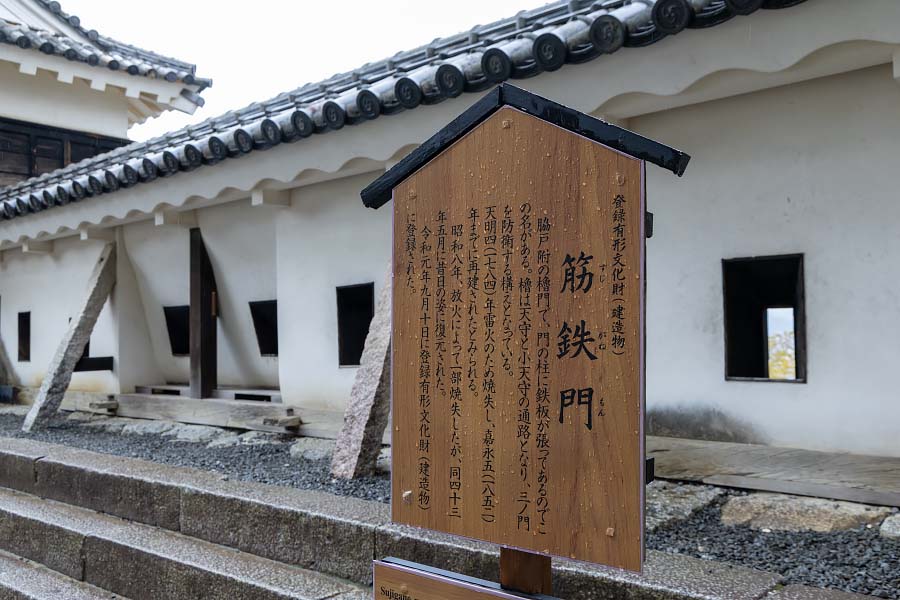 登録有形文化財（建造物）
筋鉄門
すじ がね もん
脇戸附の櫓門で、門の柱に鉄板が張ってあるのでこ
の名がある。櫓は天守と小天守の通路となり、三ノ門
を防衛する構えとなっている。
天明四（一七八四）年雷火のため焼失し、嘉永五（一八五二）
年までに再建されたとみられる。
昭和八年、放火によって一部焼失したが、同四十三
年五月に昔日の姿に復元された。
令和元年九月十日に登録有形文化財（建造物）
に登録された。
Sujigane